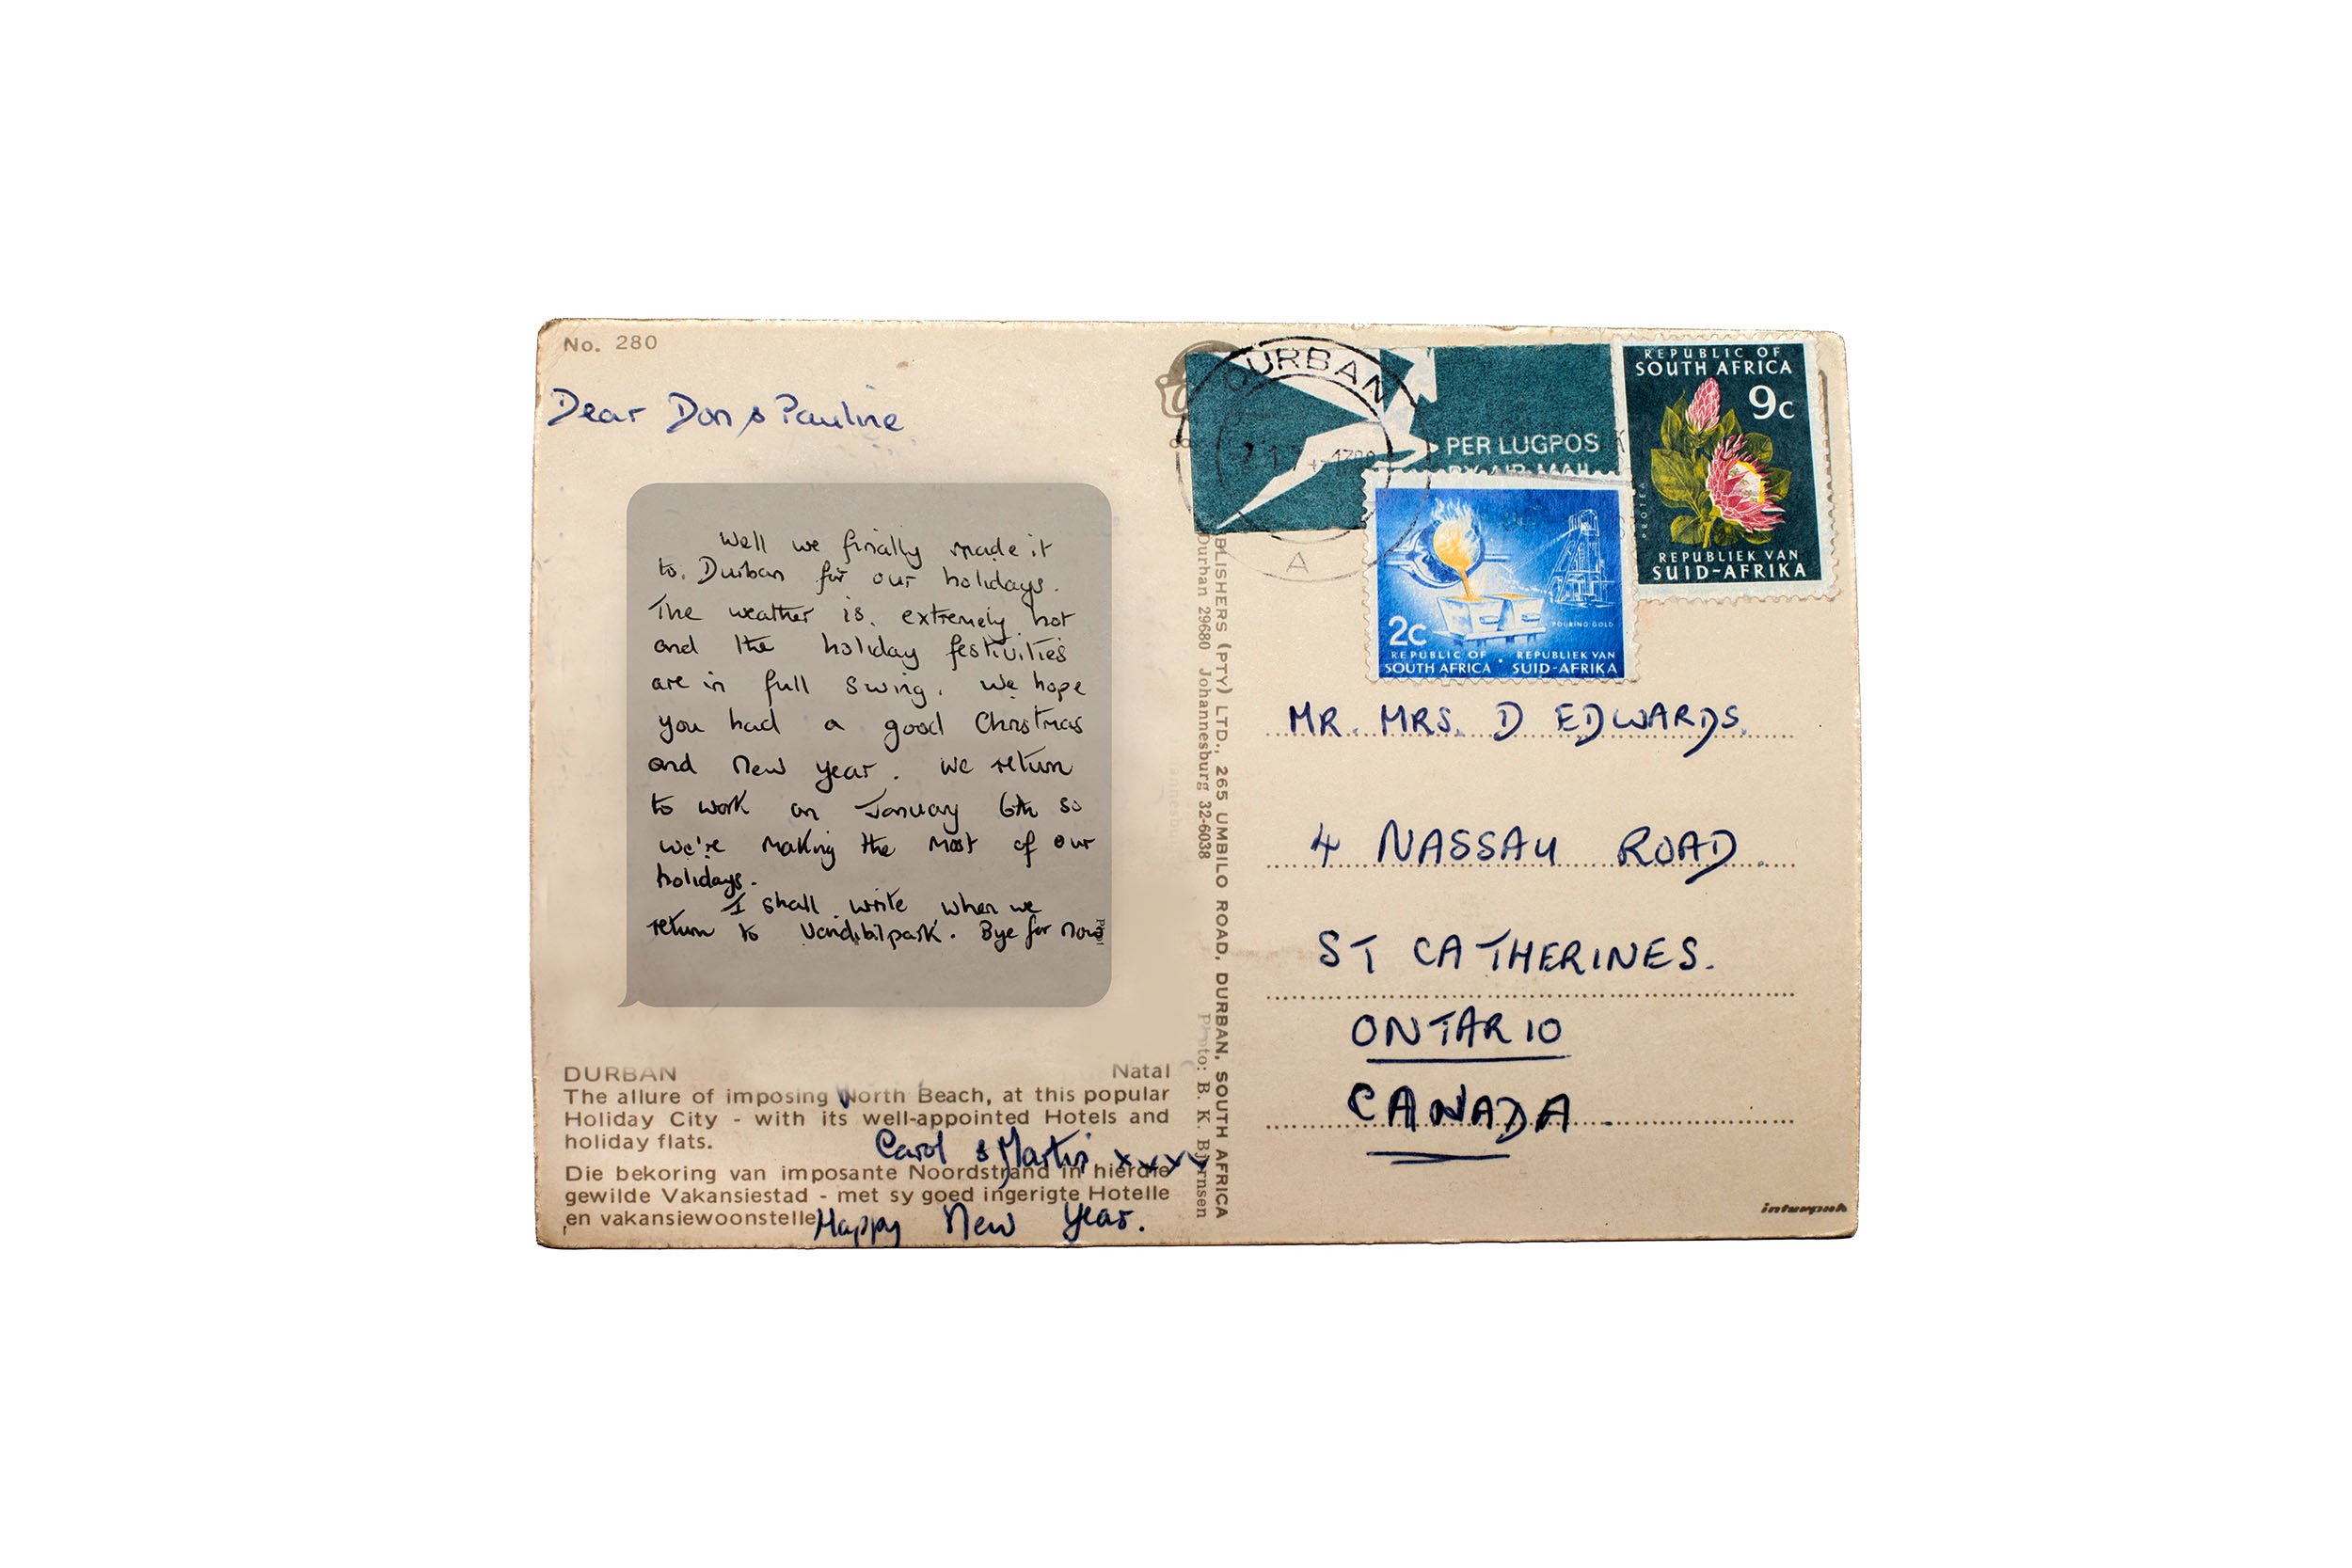 No. 280
Dear Don & Pauline
Well we finally made it
to Durban for our holidays.
The weather is extremely hot
and the holiday festivities
are in full swing. We hope
you had a good Christmas
and New Year. We return
to work on January 6th so
we're making the most of our
holidays.
I shall write when we
return to Vandibilpark. Bye for now
DURBAN Natal
The allure of imposing North Beach, at this popular
Holiday City - with its well-appointed Hotels and
holiday flats.
Carol & Martin xxxx
Die bekoring van imposante Noordstrand in hierdie
gewilde Vakansiestad - met sy goed ingerigte Hotelle
en vakansiewoonstelle
Happy New Year.
BLISHERS (PTY) LTD., 265 UMBILO ROAD, DURBAN, SOUTH AFRICA
Durban 29680 Johannesburg 32-6038 Photo: B. K. Bjørnsen
DURBAN
A
PER LUGPOS
BY AIR MAIL
REPUBLIC OF
SOUTH AFRICA
9c
PROTEA
REPUBLIEK VAN
SUID-AFRIKA
POURING GOLD
2c
REPUBLIC OF SOUTH AFRICA · REPUBLIEK VAN SUID-AFRIKA
MR. MRS. D EDWARDS.
4 NASSAU ROAD.
ST CATHERINES.
ONTARIO
CANADA.
interpak